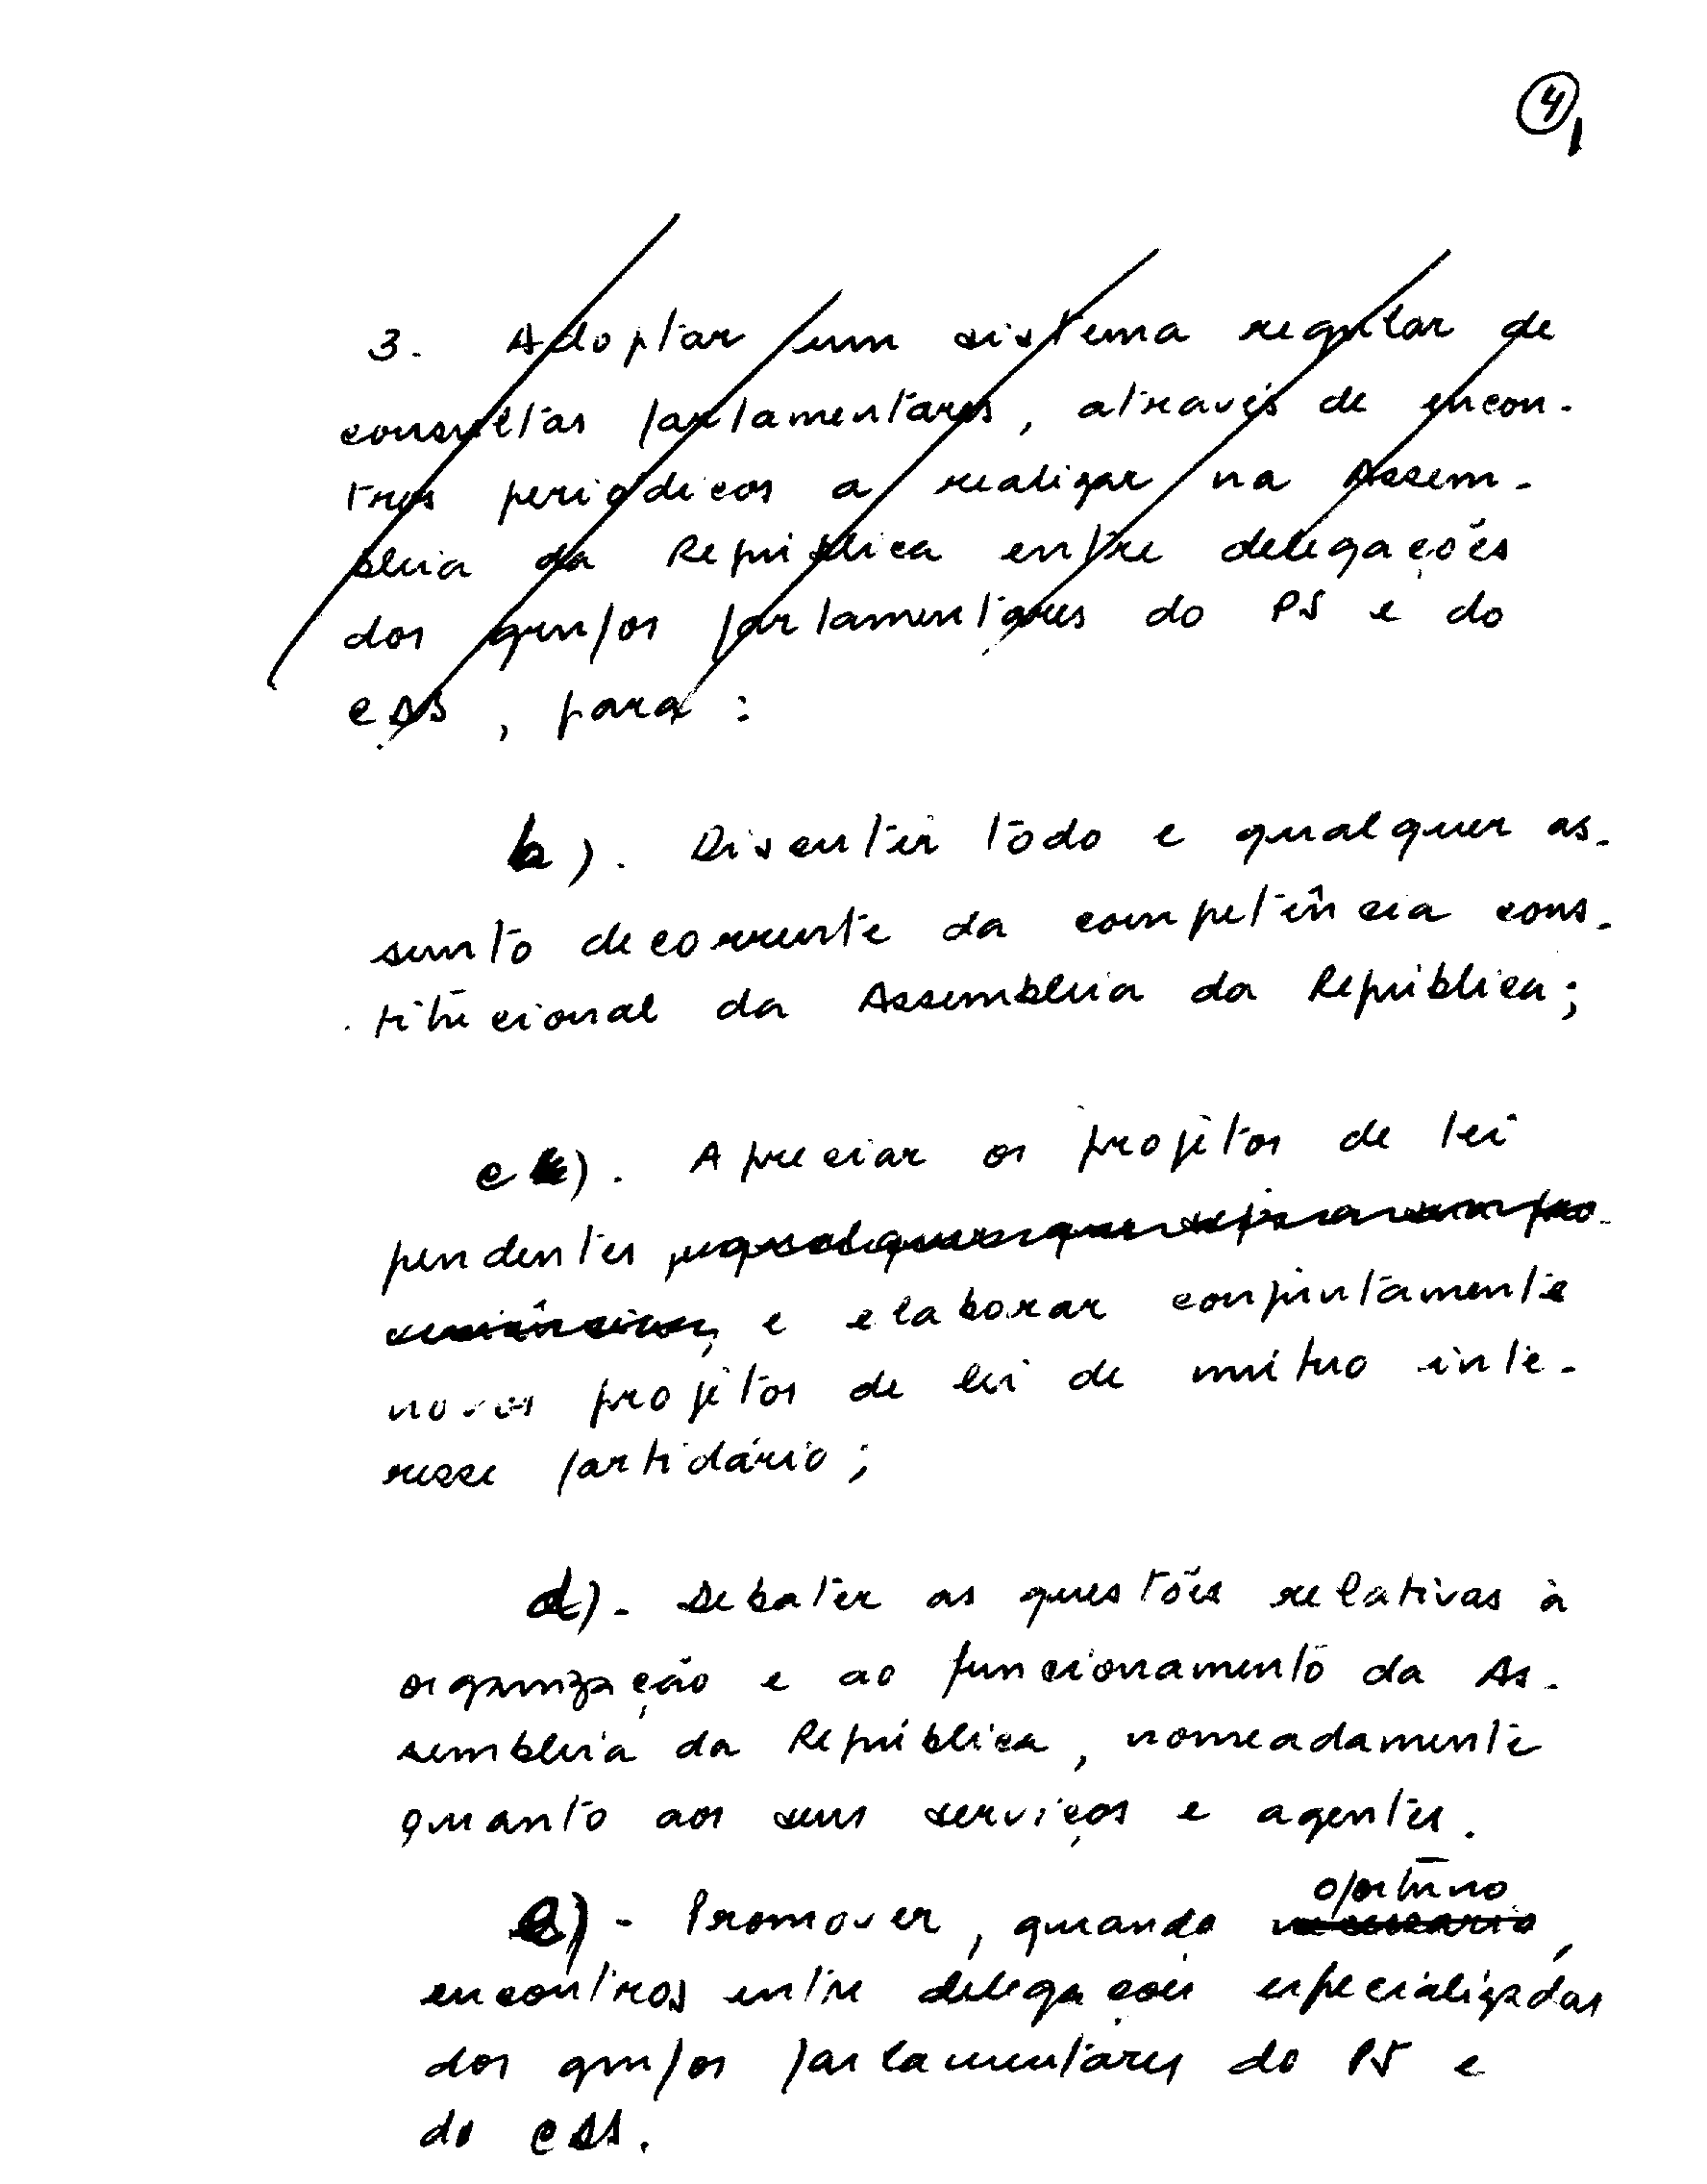 4
3. Adoptar um sistema regular de
consultas parlamentares, através de encon-
tros periódicos a realizar na Assem-
bleia da República entre delegações
dos grupos parlamentares do PS e do
CDS, para:
b). Discutir todo e qualquer as-
sunto decorrente da competência cons-
titucional da Assembleia da República;
c). Apreciar os projetos de lei
pendentes
e elaborar conjuntamente
novos projetos de lei de mútuo inte-
resse partidário;
d)- Debater as questões relativas à
organização e ao funcionamento da As-
sembleia da República, nomeadamente
quanto aos seus serviços e agentes.
oportuno
e)- Promover, quando necessario,
encontros entre delegações especializadas
dos grupos parlamentares do PS e
do CDS.